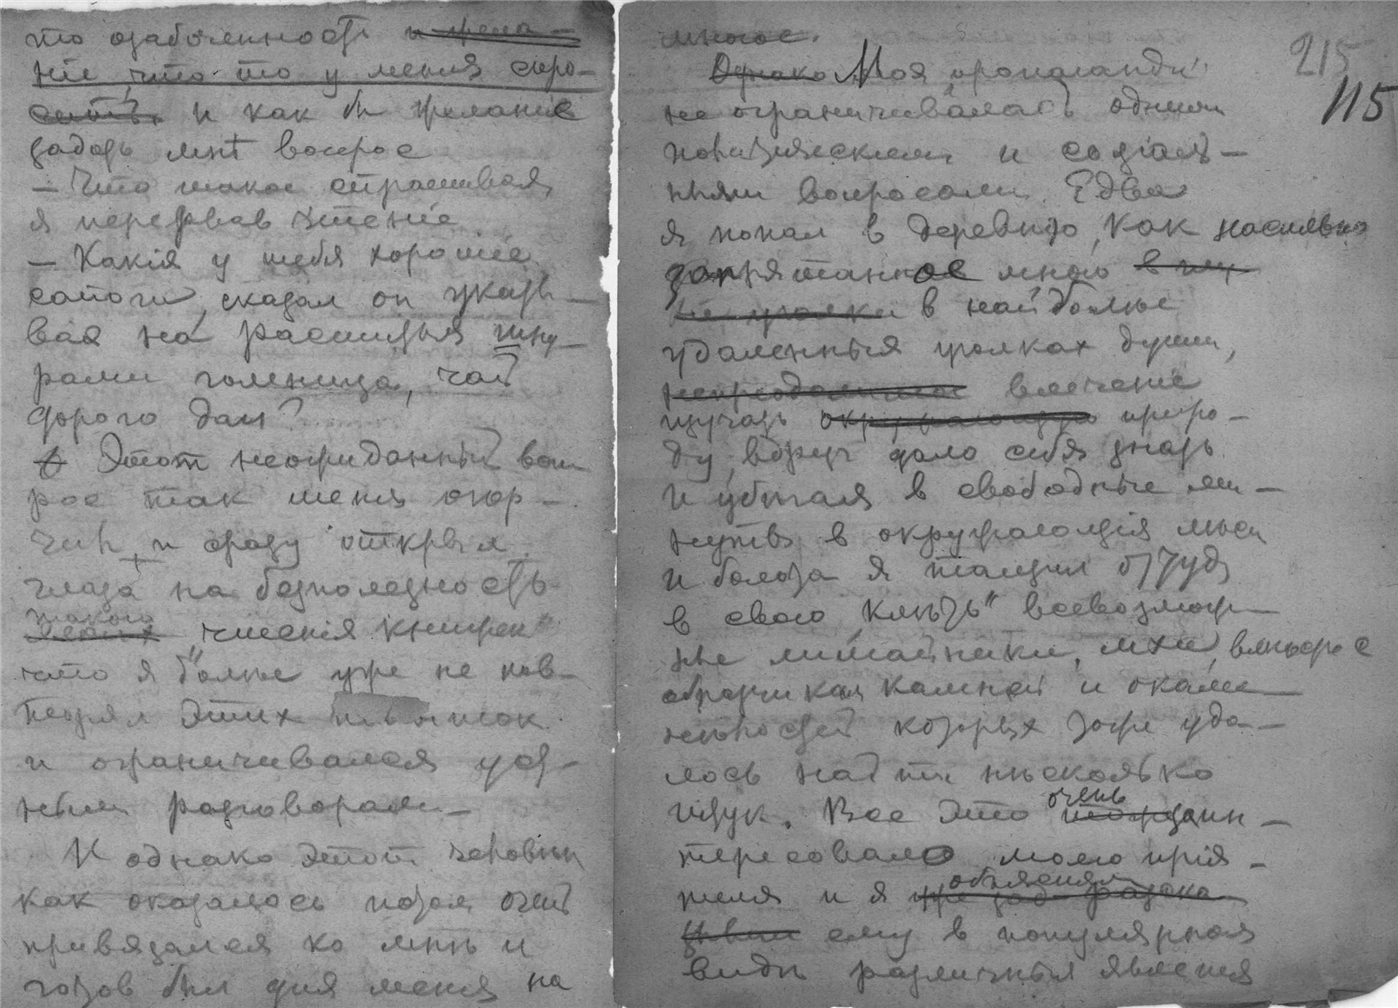 то озабоченность и жела-
ніе что-то у меня спро-
сить, и как бы желаніе
задать мнѣ вопрос
— Что такое спрашиваю
я перервав чтеніе
— Какія у тебя хорошіе
сапоги, сказал он указы-
вая на расшитыя шну-
рами голенища, чай
дорого дал?
Этот неожиданный воп-
рос так меня огор-
чил, и сразу открыл
глаза на безполезность
такого чтенія книжек
что я больше уже не пов-
торял этих попыток
и ограничивался уст-
ными разговорами
И однако этот человѣк
как оказалось потом очень
привязался ко мнѣ и
готов был для меня на
многое.
Однако Моя пропаганда
не ограничивалась одними
политическими и соціаль-
ными вопросами. Едва
я попал в деревню, как насильно
запрятанное мною в
в наиболѣе
удаленныя уголках души,
непреодолимое влеченіе
изучать окружающую приро-
ду, вдруг дало себя знать
и убѣгая в свободные ми-
нуты в окружающія лѣса
и болота я тащил оттуда
в свою клѣть всевозмож-
ные лишайники, мхи, вмѣстѣ с
образчиками камней и окаме-
нѣлостей которых тоже уда-
лось найти нѣсколько
штук. Все это очень заин-
тересовало моего прія-
теля и я объяснял
ему в популярном
видѣ различныя явленія
215
115